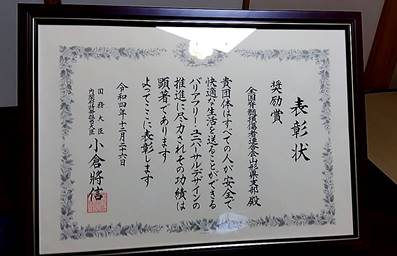 表彰状
奨励賞
全国脊髄損傷者連合会山形県支部 殿
貴団体はすべての人が安全で
快適な生活を送ることができる
バリアフリー・ユニバーサルデザインの
推進に尽力されその功績は
顕著であります
よってここに表彰します
令和四年十二月二十六日
国務大臣
内閣府特命担当大臣
小倉將信